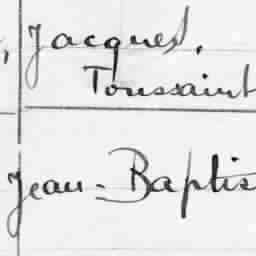 , Jacques.
Toussaint
Jean-Baptis